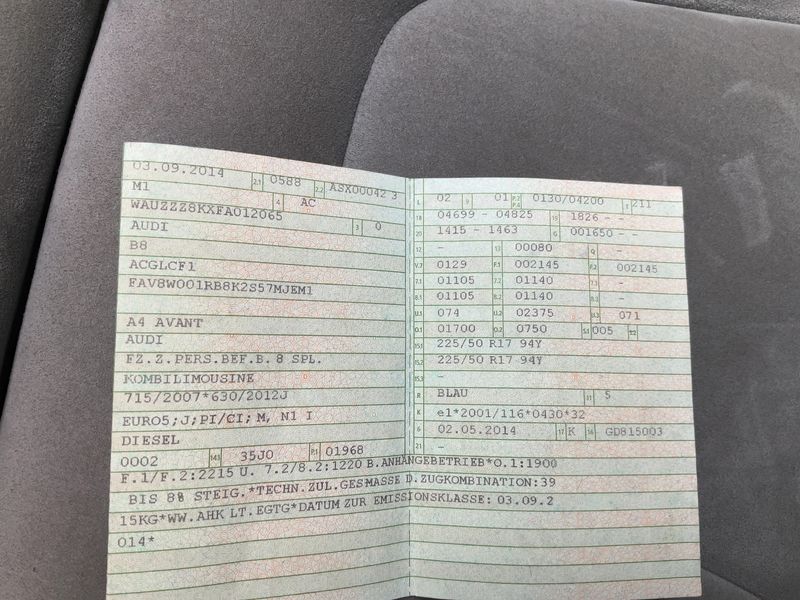 03.09.2014 2.1 0588 2.2 ASX00042 3
M1 4 AC
WAUZZZ8KXFA012065
AUDI 3 0
B8
ACGLCF1
FAV8W001RB8K2S57MJEM1
A4 AVANT
AUDI
FZ.Z.PERS.BEF.B. 8 SPL.
KOMBILIMOUSINE
715/2007*630/2012J
EURO5;J;PI/CI; M, N1 I
DIESEL
0002 14.1 35J0 P.1 01968
L 02 9 01 P.2 P.4 0130/04200 T 211
18 04699 - 04825 19 1826 - -
20 1415 - 1463 G 001650 - -
12 - 13 00080 Q -
V.7 0129 F.1 002145 F.2 002145
7.1 01105 7.2 01140 7.3 -
8.1 01105 8.2 01140 8.3 -
U.1 074 U.2 02375 U.3 071
O.1 01700 O.2 0750 S.1 005 S.2
15.1 225/50 R17 94Y
15.2 225/50 R17 94Y
15.3 -
R BLAU 11 5
K e1*2001/116*0430*32
6 02.05.2014 17 K 16 GD815003
21 -
F.1/F.2:2215 U. 7.2/8.2:1220 B.ANHÄNGEBETRIEB*O.1:1900
BIS 8% STEIG.*TECHN.ZUL.GESMASSE D.ZUGKOMBINATION:39
15KG*WW.AHK LT.EGTG*DATUM ZUR EMISSIONSKLASSE: 03.09.2
014*